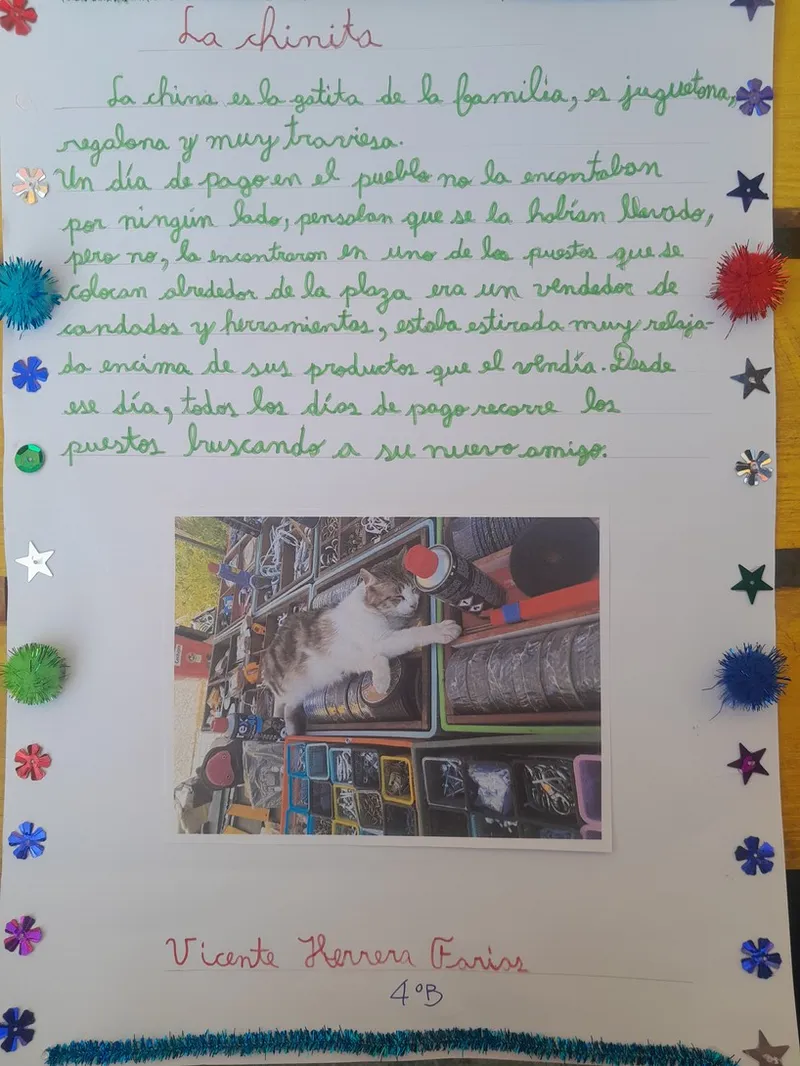 La chinita
La china es la gatita de la familia, es juguetona,
regalona y muy traviesa.
Un día de pago en el pueblo no la encontaban
por ningún lado, pensaban que se la habían llevado,
pero no, la encontraron en uno de los puestos que se
colocan alrededor de la plaza era un vendedor de
candados y herramientas, estaba estirada muy relaja-
da encima de sus productos que el vendía. Desde
ese día, todos los días de pago recorre los
puestos buscando a su nuevo amigo.
rex
Vicente Herrera Farias
4°B